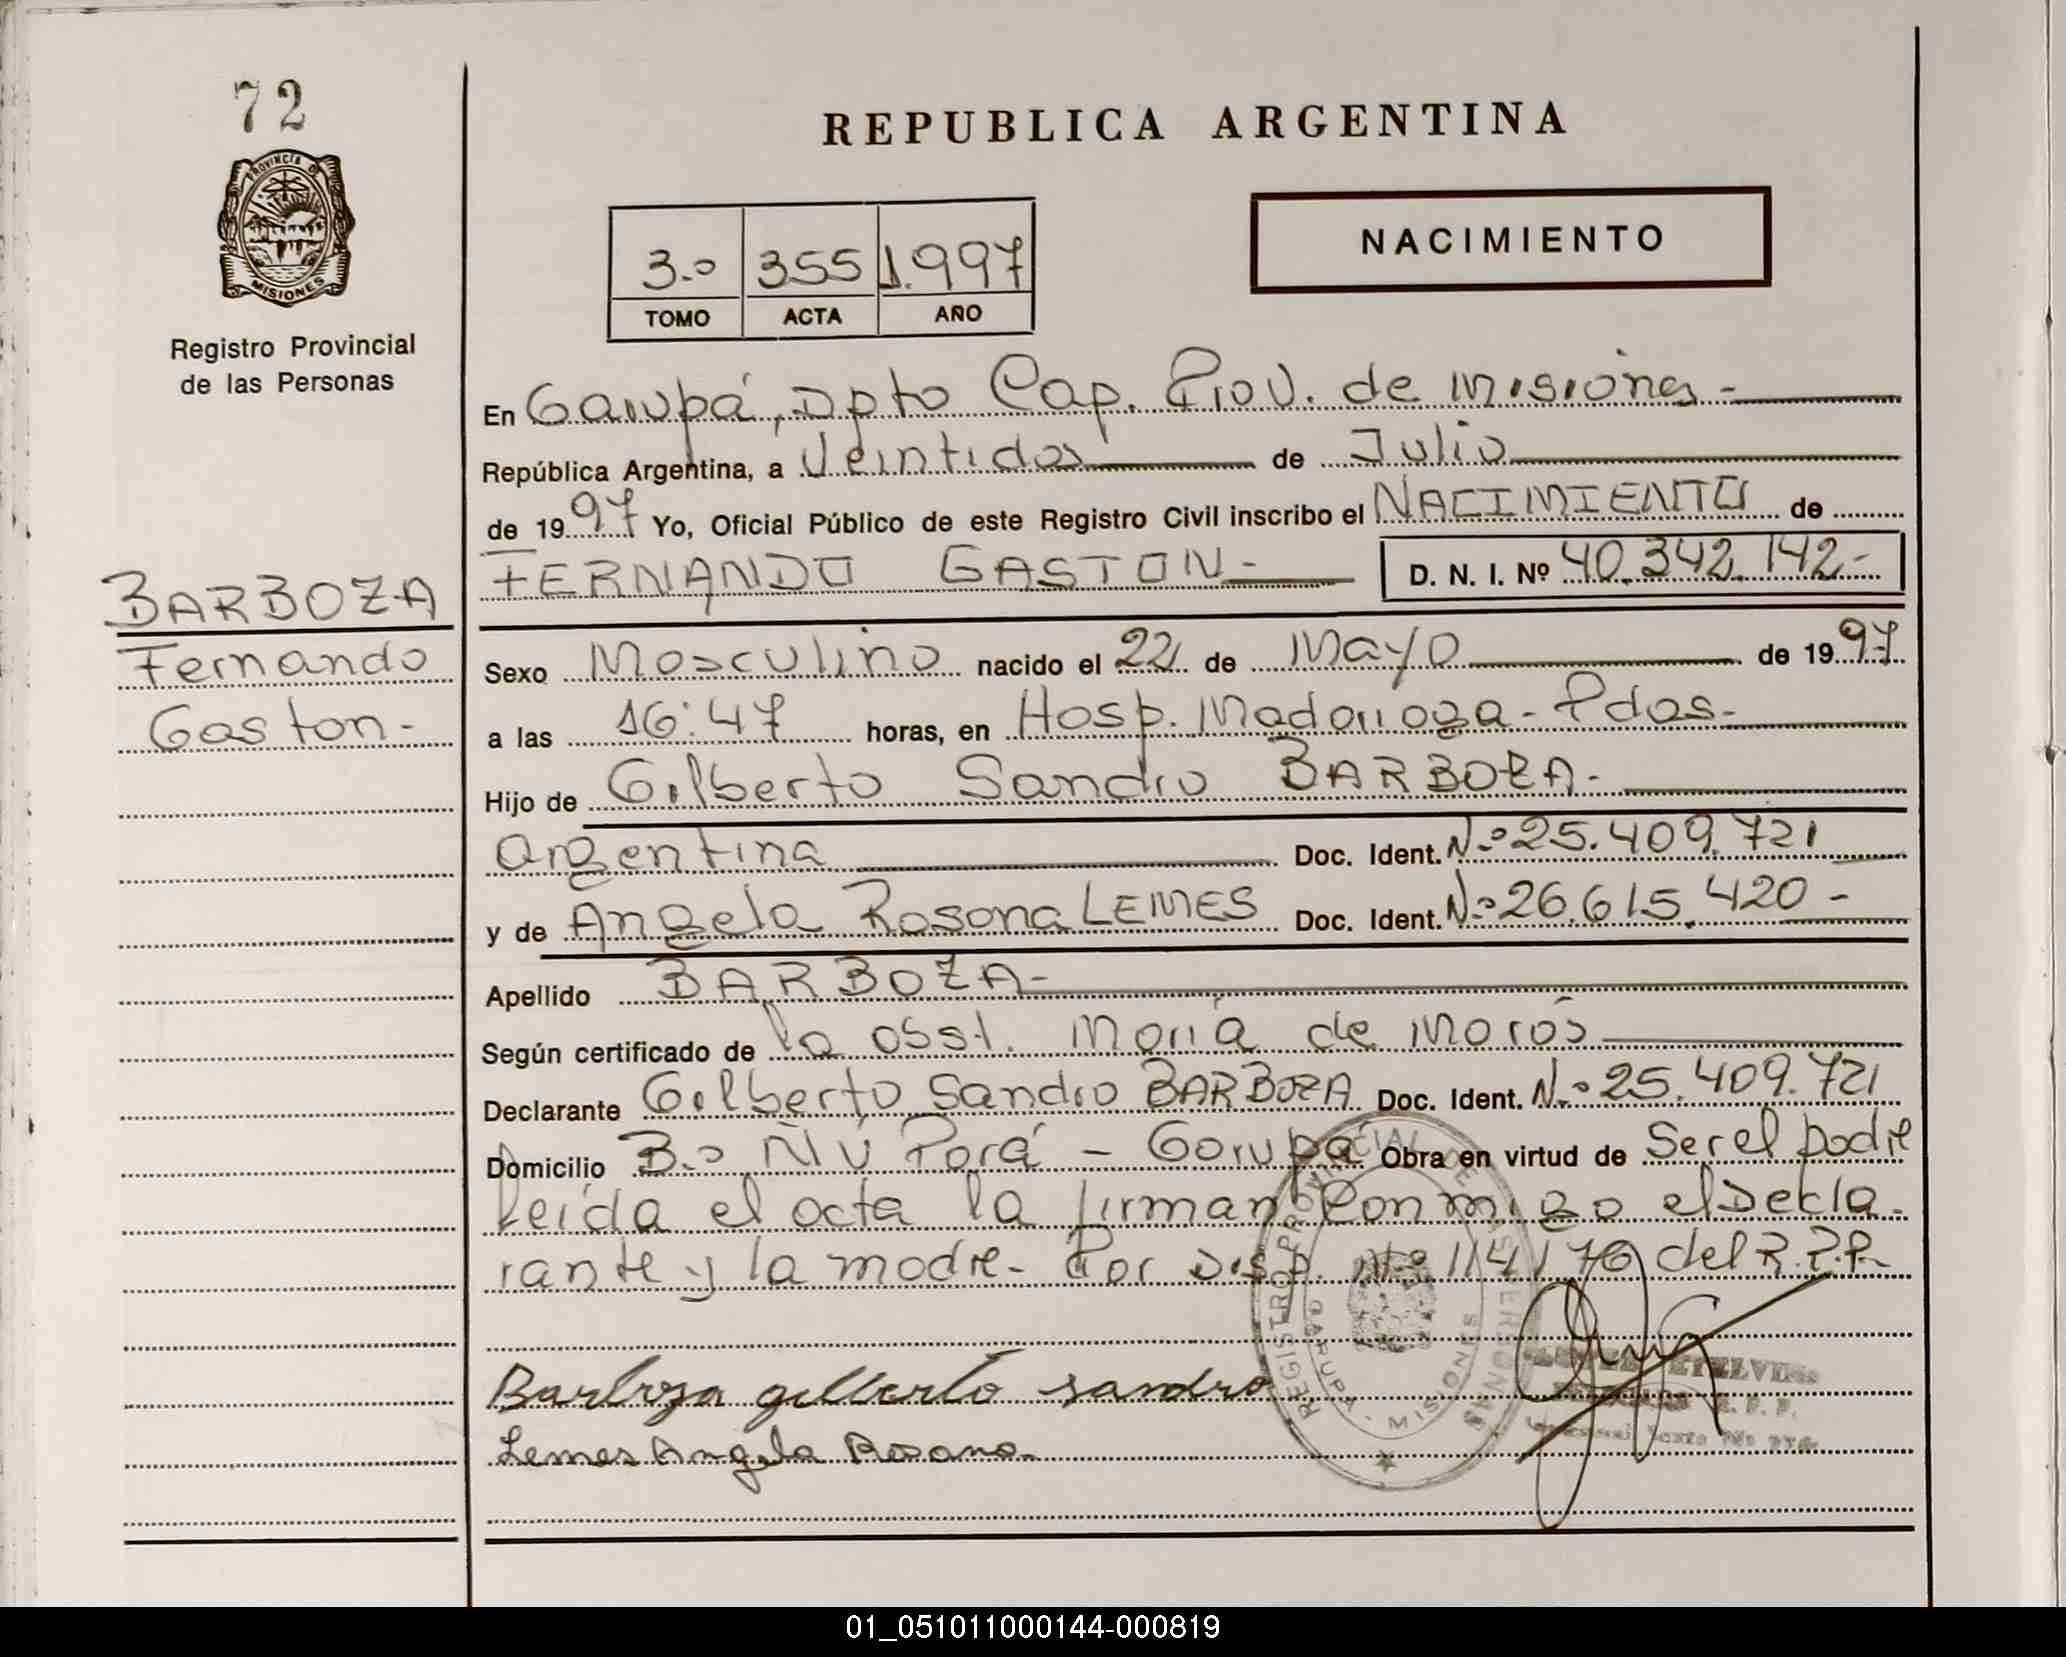 72
PROVINCIA DE
MISIONES
Registro Provincial
de las Personas
REPUBLICA ARGENTINA
3.º 355 1.997
TOMO ACTA AÑO
NACIMIENTO
En Garupá, Dpto Cap. Prov. de Misiones -
República Argentina, a Veintidos de Julio
de 1997 Yo, Oficial Público de este Registro Civil inscribo el NACIMIENTO de
FERNANDO GASTON - D. N. I. Nº 40.342.142-
BARBOZA
Fernando
Gaston-
Sexo Masculino nacido el 22 de Mayo de 1997
a las 16:47 horas, en Hosp. Madariaga - Pdas-
Hijo de Gilberto Sandro BARBOZA-
Argentina Doc. Ident. N.º 25.409.721
y de Angela Rosana LEMES Doc. Ident. N.º 26.615.420 -
Apellido BARBOZA-
Según certificado de la obst. María de Moros
Declarante Gilberto Sandro BARBOZA Doc. Ident. N.º 25.409.721
Domicilio B.º ÑU Porá - Garupá Obra en virtud de Ser el padre
Leída el acta la firman conmigo el Decla-
rante y la madre- Por Disp. Nº 114/76 del R.P.P.
REGISTRO PROVINCIAL DE LAS PERSONAS
GARUPA - MISIONES
Barboza gilberto sandro
Lemes Angela Rosana-
ETELVINA
R. P. P.
01_051011000144-000819